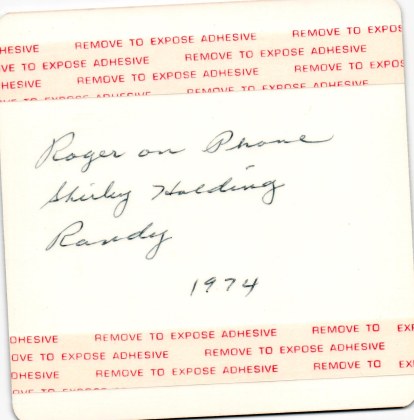 HESIVE REMOVE TO EXPOSE ADHESIVE REMOVE TO EXPOS
VE TO EXPOSE ADHESIVE REMOVE TO EXPOSE ADHESIVE
HESIVE REMOVE TO EXPOSE ADHESIVE REMOVE TO EXPO
VE TO EXPOSE ADHESIVE REMOVE TO EXPOSE ADHESIVE
Roger on Phone
Shirley Holding
Randy
1974
DHESIVE REMOVE TO EXPOSE ADHESIVE REMOVE TO EX
OVE TO EXPOSE ADHESIVE REMOVE TO EXPOSE ADHESIVE
DHESIVE REMOVE TO EXPOSE ADHESIVE REMOVE TO EX